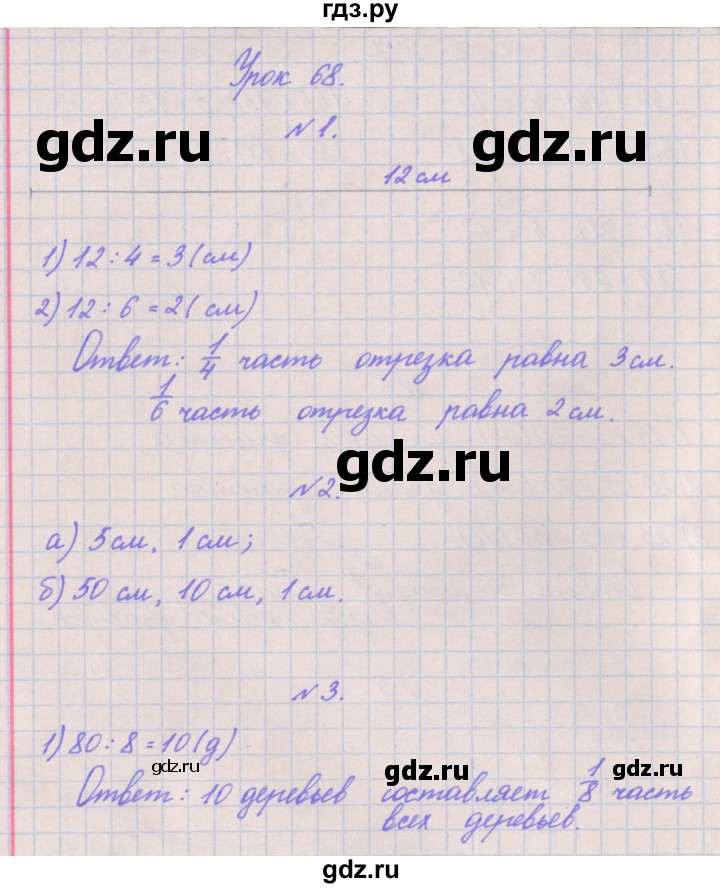 гдз.ру
Урок 68.
gdz.ru
gdz.ru
№1.
12 см
1) 12 : 4 = 3 (см)
2) 12 : 6 = 2 (см)
Ответ: 1/4 часть отрезка равна 3 см.
1/6 часть отрезка равна 2 см.
gdz.ru
№2.
а) 5 см, 1 см;
б) 50 см, 10 см, 1 см.
№3.
1) 80 : 8 = 10 (д)
gdz.ru
gdz.ru
gdz.ru
Ответ: 10 деревьев составляет 1/8 часть
всех деревьев.
gdz.ru